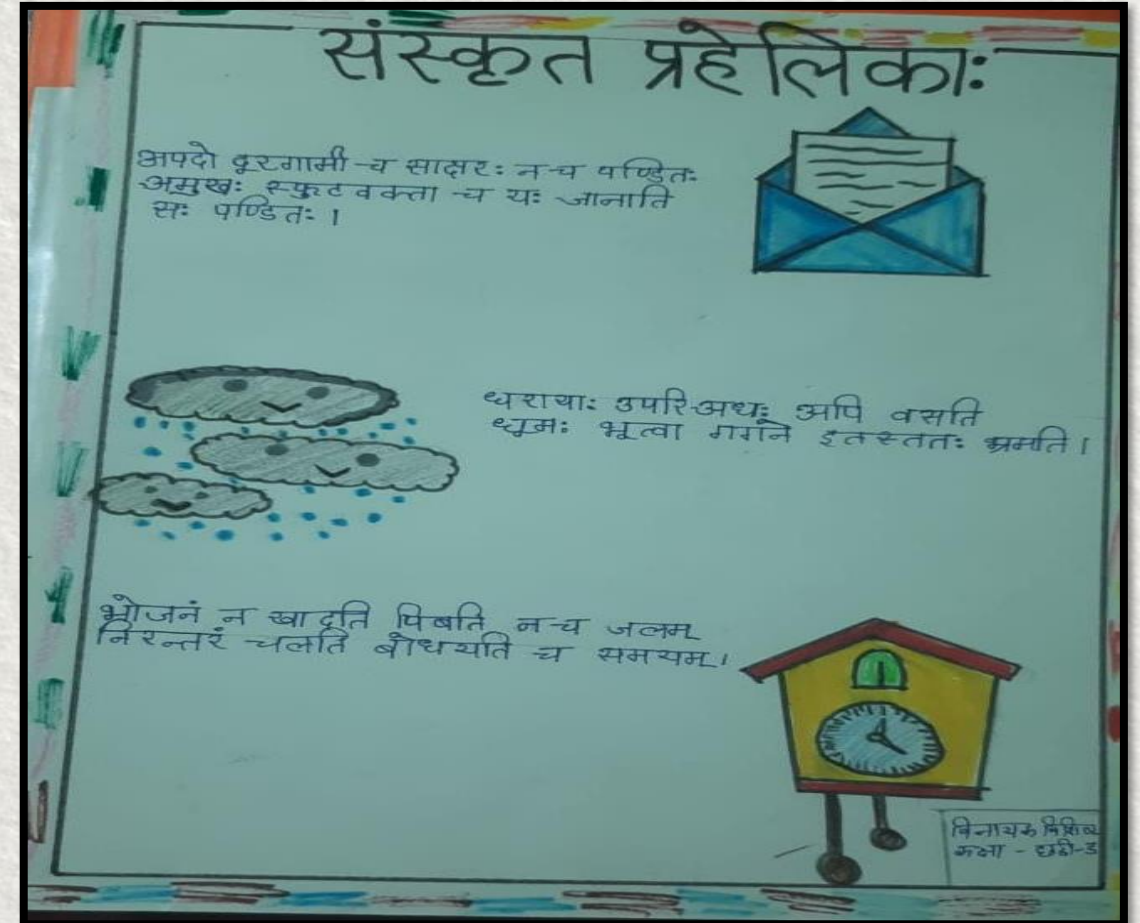 संस्कृत प्रहेलिकाः
अपदो दूरगामी च साक्षरः न च पण्डितः
अमुखः स्फुटवक्ता च यः जानाति
सः पण्डितः ।
धरायाः उपरि अधः अपि वसति
धूमः भूत्वा गगने इतस्ततः भ्रमति ।
भोजनं न खादति पिबति न च जलम्
निरन्तरं चलति बोधयति च समयम् ।
विनायक
कक्षा - छठी-ड